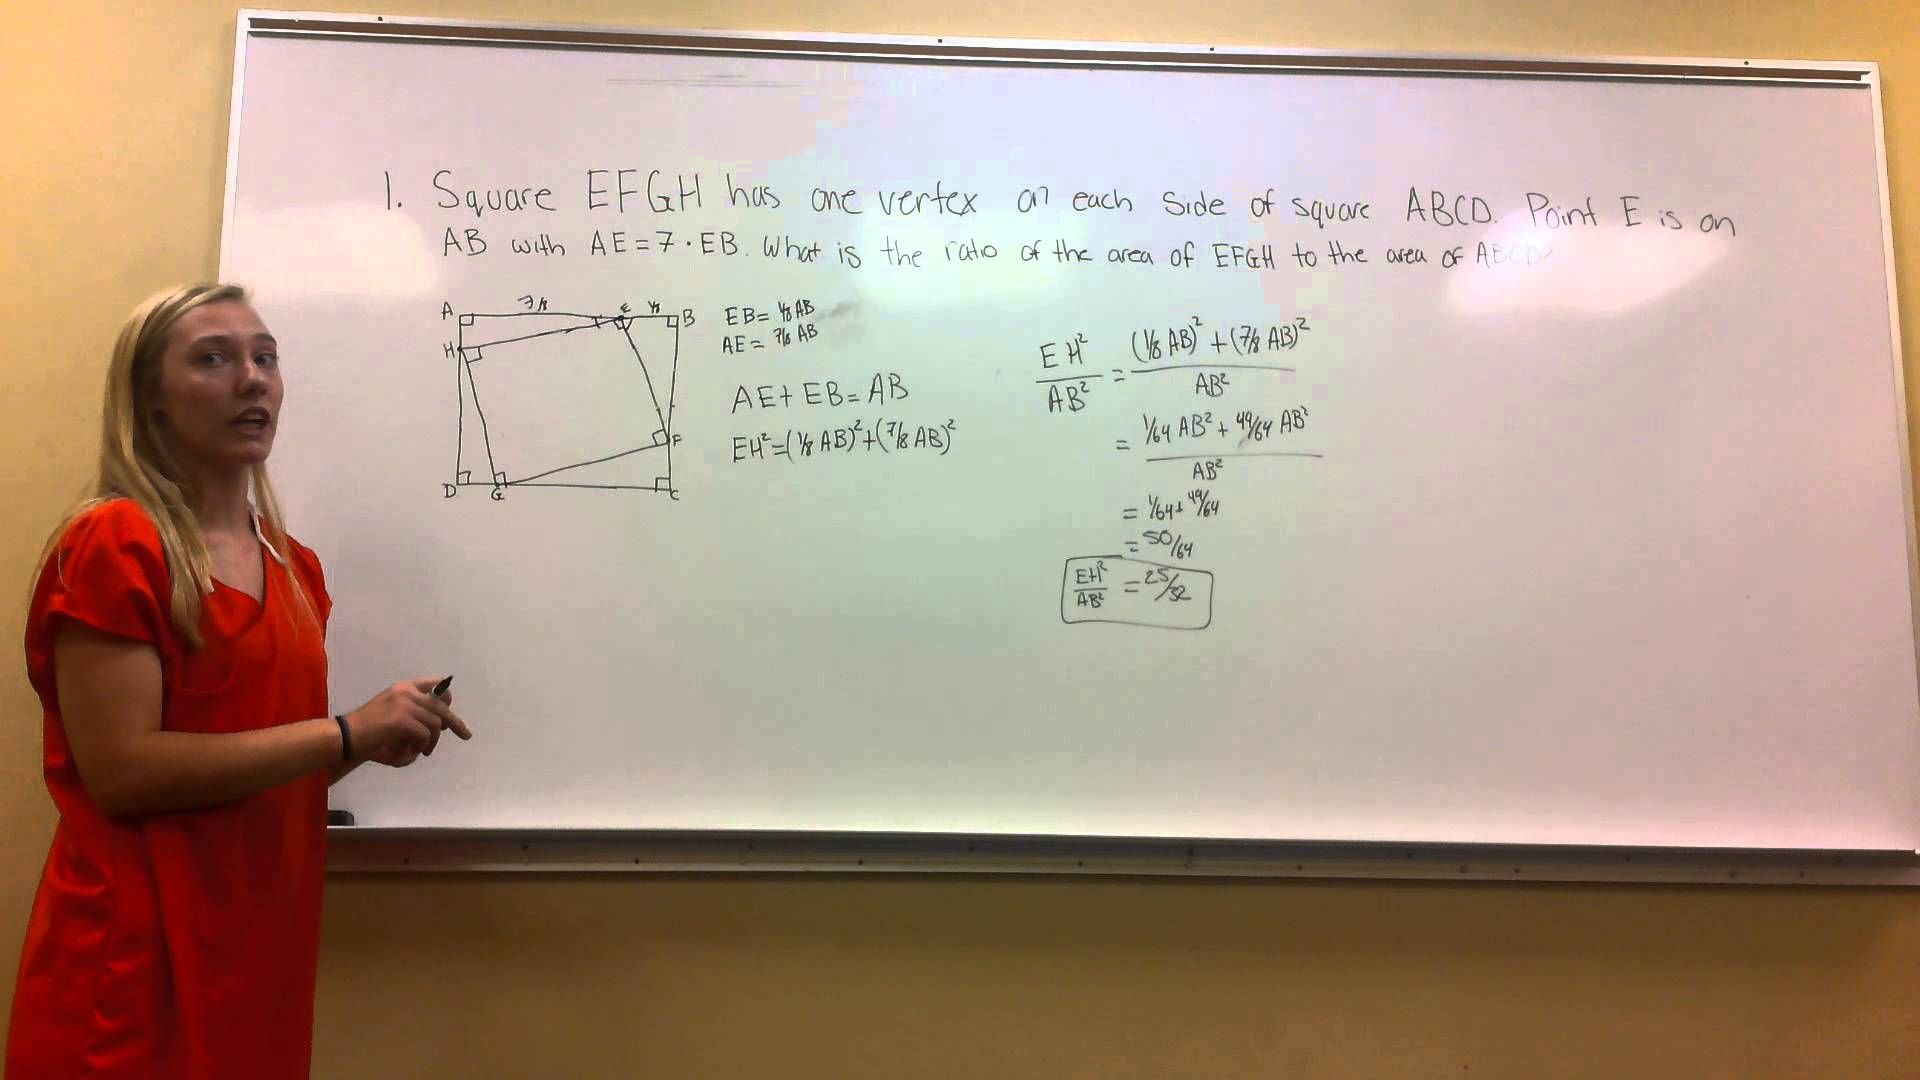 1. Square EFGH has one vertex on each side of square ABCD. Point E is on
AB with AE = 7 · EB. What is the ratio of the area of EFGH to the area of ABCD?
A 7/8 E 1/8 B
H
F
D G C
EB = 1/8 AB
AE = 7/8 AB
AE + EB = AB
EH² = (1/8 AB)² + (7/8 AB)²
EH²/AB² = (1/8 AB)² + (7/8 AB)²/AB²
= 1/64 AB² + 49/64 AB²/AB²
= 1/64 + 49/64
= 50/64
EH²/AB² = 25/32